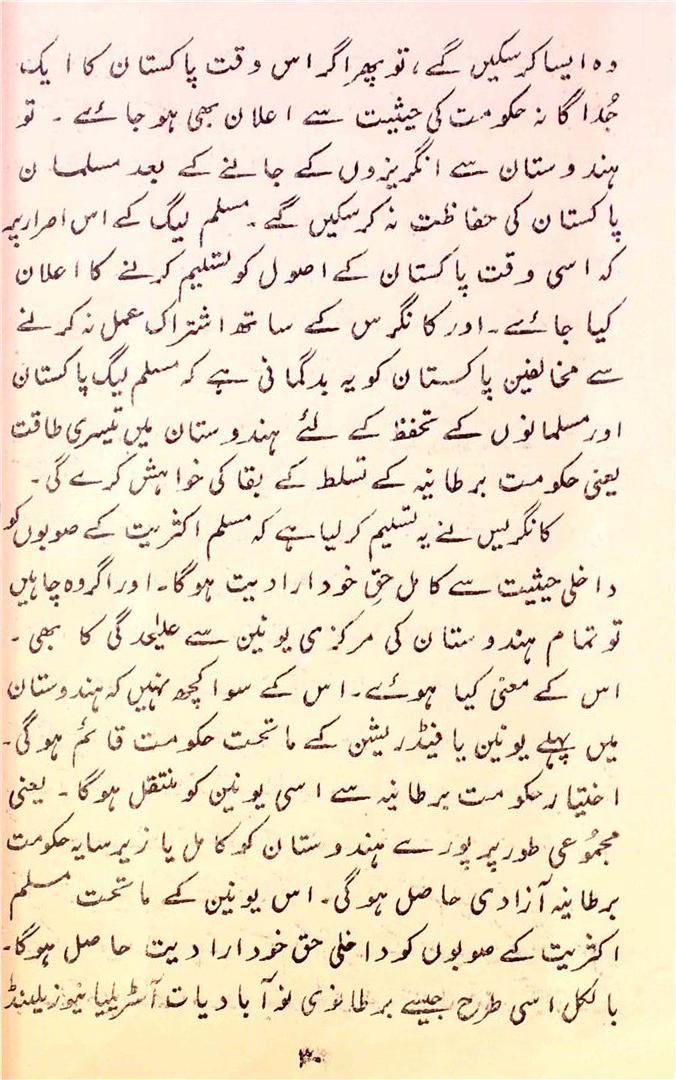 وہ ایسا کرسکیں گے، تو پھر اگر اس وقت پاکستان کا ایک
جُداگانہ حکومت کی حیثیت سے اعلان بھی ہو جائے ۔ تو
ہندوستان سے انگریزوں کے جانے کے بعد مسلمان
پاکستان کی حفاظت نہ کرسکیں گے ۔ مسلم لیگ کے اس اصرار پر
کہ اسی وقت پاکستان کے اصول کو تسلیم کرنے کا اعلان
کیا جائے ۔ اور کانگرس کے ساتھ اشتراک عمل نہ کرنے
سے مخالفین پاکستان کو یہ بدگمانی ہے کہ مسلم لیگ پاکستان
اور مسلمانوں کے تحفظ کے لئے ہندوستان میں تیسری طاقت
یعنی حکومت برطانیہ کے تسلط کے بقا کی خواہش کرے گی ۔
کانگریس نے یہ تسلیم کرلیا ہے کہ مسلم اکثریت کے صوبوں کو
داخلی حیثیت سے کامل حقِ خود ارادیت ہوگا ۔ اور اگر وہ چاہیں
تو تمام ہندوستان کی مرکزی یونین سے علیٰحدگی کا بھی ۔
اس کے معنی کیا ہوئے ۔ اس کے سوا کچھ نہیں کہ ہندوستان
میں پہلے یونین یا فیڈریشن کے ماتحت حکومت قائم ہوگی ۔
اختیار حکومت برطانیہ سے اسی یونین کو منتقل ہوگا ۔ یعنی
مجمُوعی طور پر پورے ہندوستان کو کامل یا زیر سایہ حکومت
برطانیہ آزادی حاصل ہوگی ۔ اس یونین کے ماتحت مسلم
اکثریت کے صوبوں کو داخلی حق خود ارادیت حاصل ہوگا ۔
بالکل اسی طرح جیسے برطانوی نوآبادیات آسٹریلیا نیوزیلینڈ
۳۰